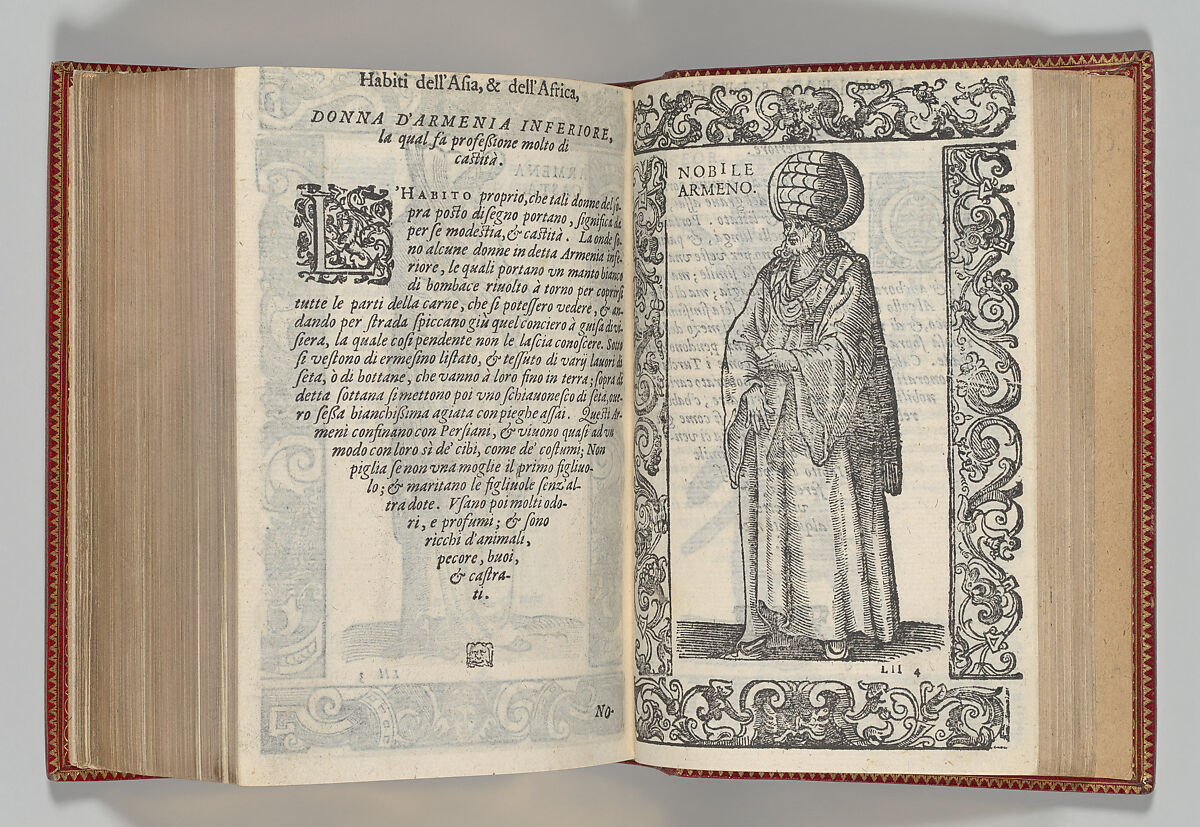 Habiti dell'Asia, & dell'Africa,
DONNA D'ARMENIA INFERIORE,
la qual fa professione molto di
castità.
L'HABITO proprio, che tali donne del so-
pra posto disegno portano, significa da
per se modestia, & castità. La onde so-
no alcune donne in detta Armenia infe-
riore, le quali portano vn manto bianco
di bombace riuolto à torno per coprirsi
tutte le parti della carne, che si potessero vedere, & an-
dando per strada spiccano giù quel conciero à guisa di vi-
siera, la quale così pendente non le lascia conoscere. Sotto
si vestono di ermesino listato, & tessuto di varij lauori di
seta, ò di bottane, che vanno à loro fino in terra; sopra di
detta sottana si mettono poi vno schiauonesco di seta, oue-
ro sessa bianchissima agiata con pieghe assai. Questi Ar-
meni confinano con Persiani, & viuono quasi ad vn
modo con loro sì de' cibi, come de' costumi; Non
piglia se non vna moglie il primo figliuo-
lo; & maritano le figliuole senz'al-
tra dote. Vsano poi molti odo-
ri, e profumi; & sono
ricchi d'animali,
pecore, buoi,
& castra-
ti.
NO-
NOBILE
ARMENO.
Lll 4